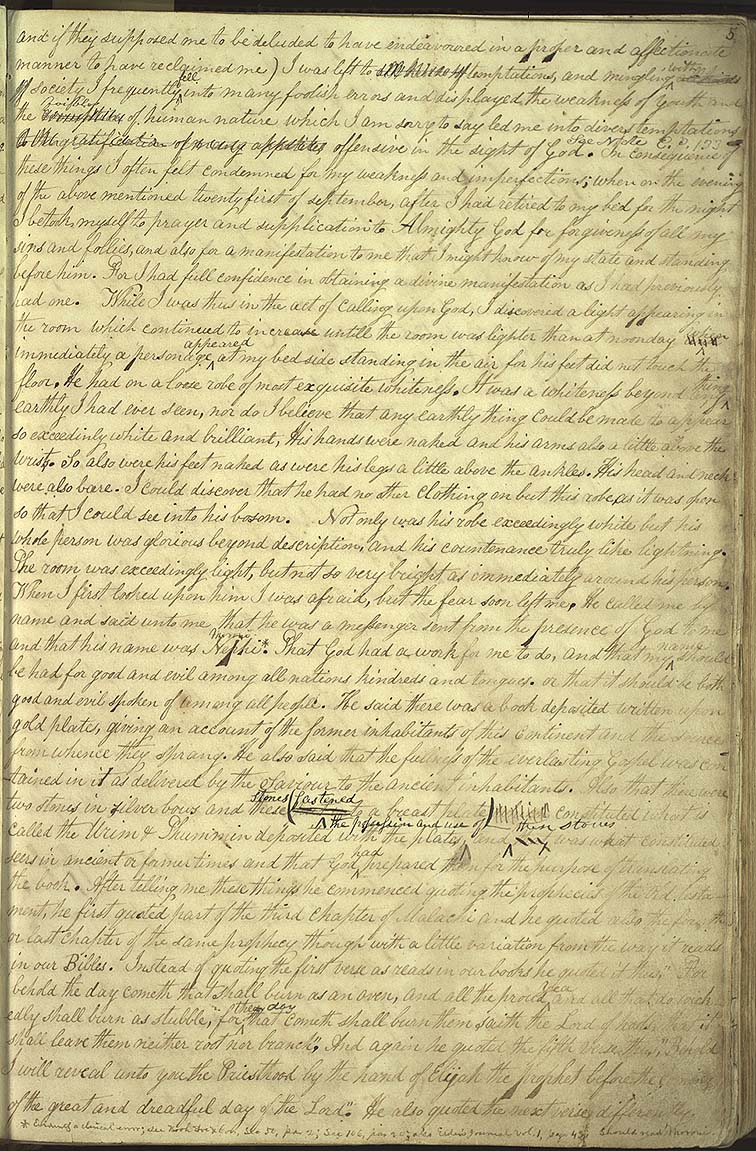 5
and if they supposed me to be deluded to have endeavoured in a proper and affectionate
manner to have reclaimed me) I was left to all kinds of temptations, and mingling with all kinds
of society I frequently fell into many foolish errors and displayed the weakness of youth and
the corruption foibles of human nature which I am sorry to say led me into divers temptations
to the gratification of many appetites offensive in the sight of God. See Note C. P. 133 In consequence of
these things I often felt condemned for my weakness and imperfections; when on the evening
of the above mentioned twenty first of september, after I had retired to my bed for the night
I betook myself to prayer and supplication to Almighty God for forgiveness of all my
sins and follies, and also for a manifestation to me that I might know of my state and standing
before him. For I had full confidence in obtaining a divine manifestation as I had previously
had one. While I was thus in the act of calling upon God, I discovered a light appearing in
the room which continued to increase untill the room was lighter than at noonday when
immediately a personage appeared at my bed side standing in the air for his feet did not touch the
floor. He had on a loose robe of most exquisite whiteness. It was a whiteness beyond any thing
earthly I had ever seen, nor do I believe that any earthly thing could be made to appear
so exceedinly white and brilliant, His hands were naked and his arms also a little above the
wrist. So also were his feet naked as were his legs a little above the ankles. His head and neck
were also bare. I could discover that he had no other clothing on but this robe, as it was open
so that I could see into his bosom. Not only was his robe exceedingly white but his
whole person was glorious beyond description, and his countenance truly like lightning.
The room was exceedingly light, but not so very bright as immediately around his person.
When I first looked upon him I was afraid, but the fear soon left me. He called me by
name and said unto me that he was a messenger sent from the presence of God to me
and that his name was Nephi * Moroni. That God had a work for me to do, and that my name should
be had for good and evil among all nations kindreds and tongues. or that it should be both
good and evil spoken of among all people. He said there was a book deposited written upon
gold plates, giving an account of the former inhabitants of this continent and the source
from whence they sprang. He also said that the fullness of the everlasting Gospel was con
tained in it as delivered by the Saviour to the ancient inhabitants. Also that there were
two stones in silver bows and these stones (fastened to a breast plate) constituted what is
called the Urim & Thummin deposited with the plates, and the possession and use of these stones was what constituted
seers in ancient or former times and that God had prepared them for the purpose of translating
the book. After telling me these things he commenced quoting the prophecies of the Old testa-
ment, he first quoted part of the third chapter of Malachi and he quoted also the fourth
or last chapter of the same prophecy though with a little variation from the way it reads
in our Bibles. Instead of quoting the first verse as reads in our books he quoted it thus, "For
behold the day cometh that shall burn as an oven, and all the proud yea and all that do wick-
edly shall burn as stubble, for they that cometh shall burn them saith the Lord of hosts, that it
shall leave them neither root nor branch". And again he quoted the fifth verse thus, "Behold
I will reveal unto you the Priesthood by the hand of Elijah the prophet before the coming
of the great and dreadful day of the Lord." He also quoted the next verse differently.
* Evidently a clerical error; see Book Doc & Cov., Sec 50, par 2; Sec 106, par 20; also Elder's Journal Vol. 1, page 43. Should read Moroni.